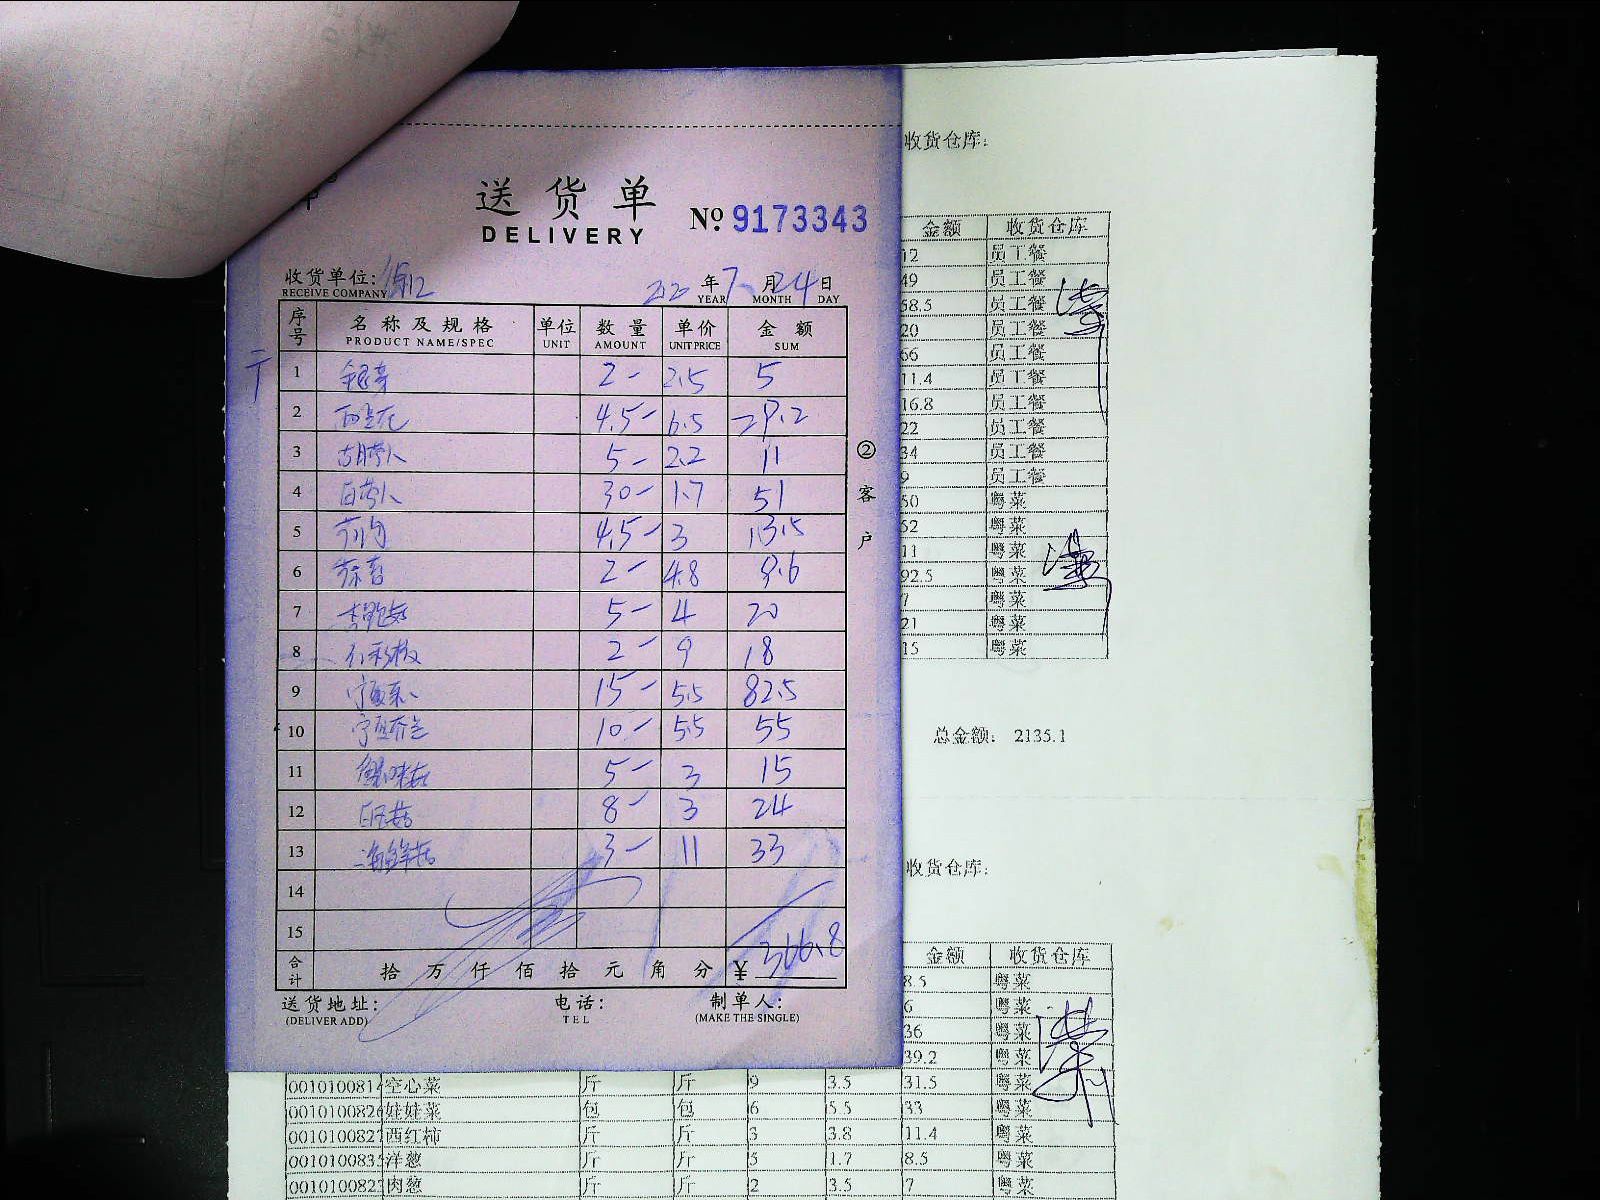 送货单
DELIVERY
№ 9173343
收货单位:
RECEIVE COMPANY
年 7 月 24 日
YEAR MONTH DAY
序号 名称及规格 单位 数量 单价 金额
PRODUCT NAME/SPEC UNIT AMOUNT UNIT PRICE SUM
1 银芽 2- 2.5 5
2 西兰花 4.5- 6.5 29.2
3 5- 2.2 11
4 30- 1.7 51
5 4.5- 3 13.5
6 2- 4.8 9.6
7 5- 4 20
8 2- 9 18
9 15- 5.5 82.5
10 10- 5.5 55
11 5- 3 15
12 8- 3 24
13 海鲜菇 3- 11 33
14
15
合计 拾万仟佰拾元角分 ¥ 366.8
送货地址: 电话: 制单人:
(DELIVER ADD) TEL (MAKE THE SINGLE)
②客户
收货仓库:
金额 收货仓库
12 员工餐
49 员工餐
58.5 员工餐
20 员工餐
66 员工餐
11.4 员工餐
16.8 员工餐
22 员工餐
34 员工餐
9 员工餐
50 粤菜
52 粤菜
11 粤菜
92.5 粤菜
7 粤菜
21 粤菜
15 粤菜
总金额: 2135.1
收货仓库:
金额 收货仓库
8.5 粤菜
6 粤菜
36 粤菜
39.2 粤菜
001010081 空心菜 斤 斤 9 3.5 31.5 粤菜
001010082 娃娃菜 包 包 6 5.5 33 粤菜
001010082 西红柿 斤 斤 3 3.8 11.4 粤菜
001010083 洋葱 斤 斤 5 1.7 8.5 粤菜
001010082 肉葱 斤 斤 2 3.5 7 粤菜